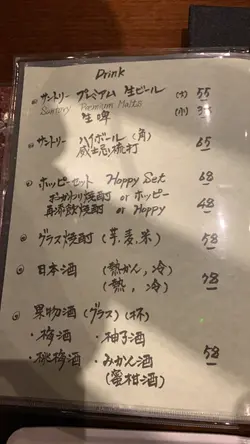 Drink
サントリー プレミアム 生ビール (大) 55
Suntory Premium Malts
生啤 (小)
サントリー ハイボール (角) 65
威士忌梳打
ホッピーセット Hoppy Set 68
おかわり焼酎 or ホッピー 48
再添飲燒酎 or Hoppy
グラス焼酎 (芋,麦,米) 58
日本酒 (熱かん,冷)
(熱,冷) 78
果物酒 (グラス) (杯)
・梅酒 ・柚子酒
・桃梅酒 ・みかん酒 58
(蜜柑酒)